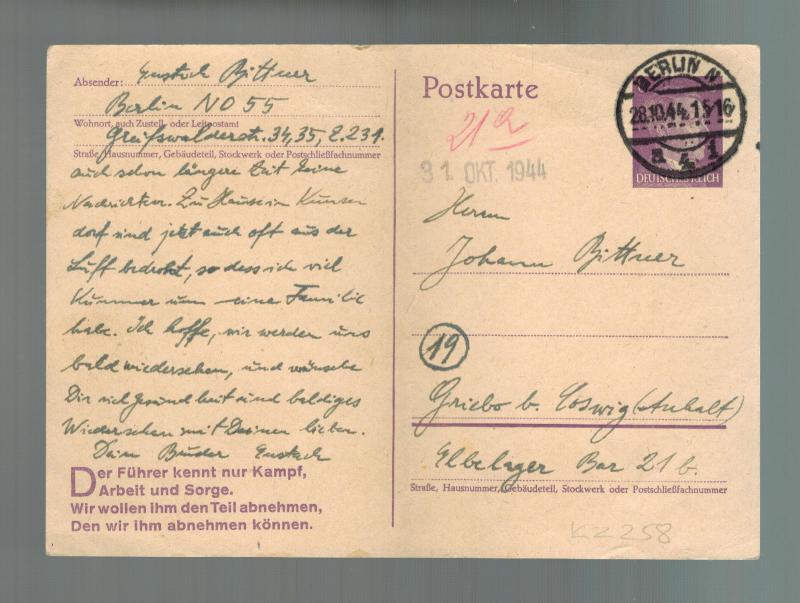 Absender: Eustach Bittner
Berlin NO 55
Wohnort, auch Zustell- oder Leitpostamt
Greifswalderstr. 34,35, Z. 231.
Straße, Hausnummer, Gebäudeteil, Stockwerk oder Postschließfachnummer
auch schon längere Zeit keine
Nachrichten. Zu Hause in Kunzen
dorf sind jetzt auch oft aus der
Luft bedroht, so dass ich viel
Kummer um eine Familie
habe. Ich hoffe, wir werden uns
bald wiedersehen, und wünsche
Dir viel Gesundheit und baldiges
Wiedersehen mit Deinen lieben.
Dein Bruder Eustach
Der Führer kennt nur Kampf,
Arbeit und Sorge.
Wir wollen ihm den Teil abnehmen,
Den wir ihm abnehmen können.
Postkarte
BERLIN N
28.10.44.15-16
a 4 a
DEUTSCHES REICH
21a
31. OKT. 1944
Herrn
Johann Bittner
19
Griebo b. Coswig (Anhalt)
Elbelager Bar 21 b.
Straße, Hausnummer, Gebäudeteil, Stockwerk oder Postschließfachnummer
KZ 258